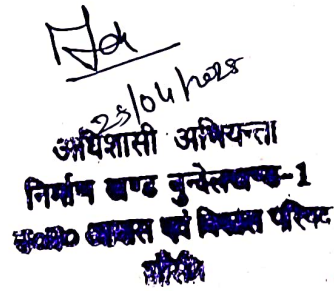 25/04/2025
अधिशासी अभियन्ता
निर्माण खण्ड बुन्देलखण्ड-1
उ०प्र० आवास एवं विकास परिषद